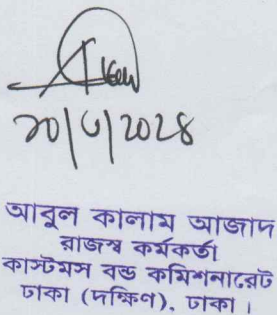 ২০/৬/২০২৪
আবুল কালাম আজাদ
রাজস্ব কর্মকর্তা
কাস্টমস বন্ড কমিশনারেট
ঢাকা (দক্ষিণ), ঢাকা।